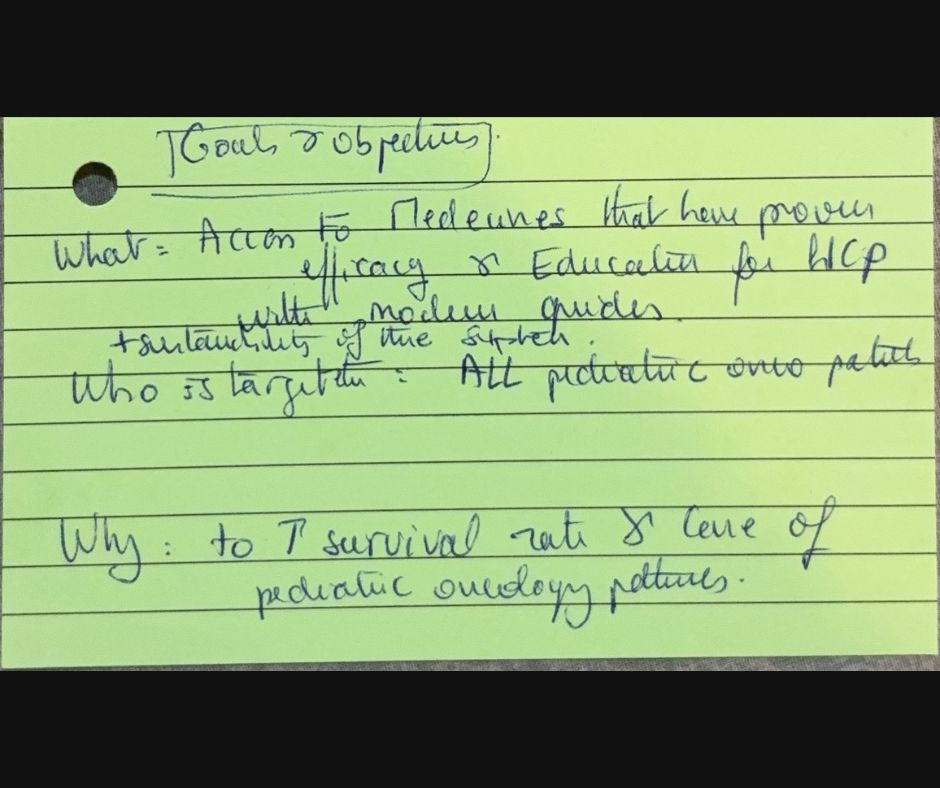 Goals & objectives.
What = Access to Medecines that have proven
efficacy & Education for HCP
with modern guides.
+ sustainability of the system.
Who is target : ALL pediatric onco patients
Why : to ↑ survival rate & Care of
pediatric oncology patients.